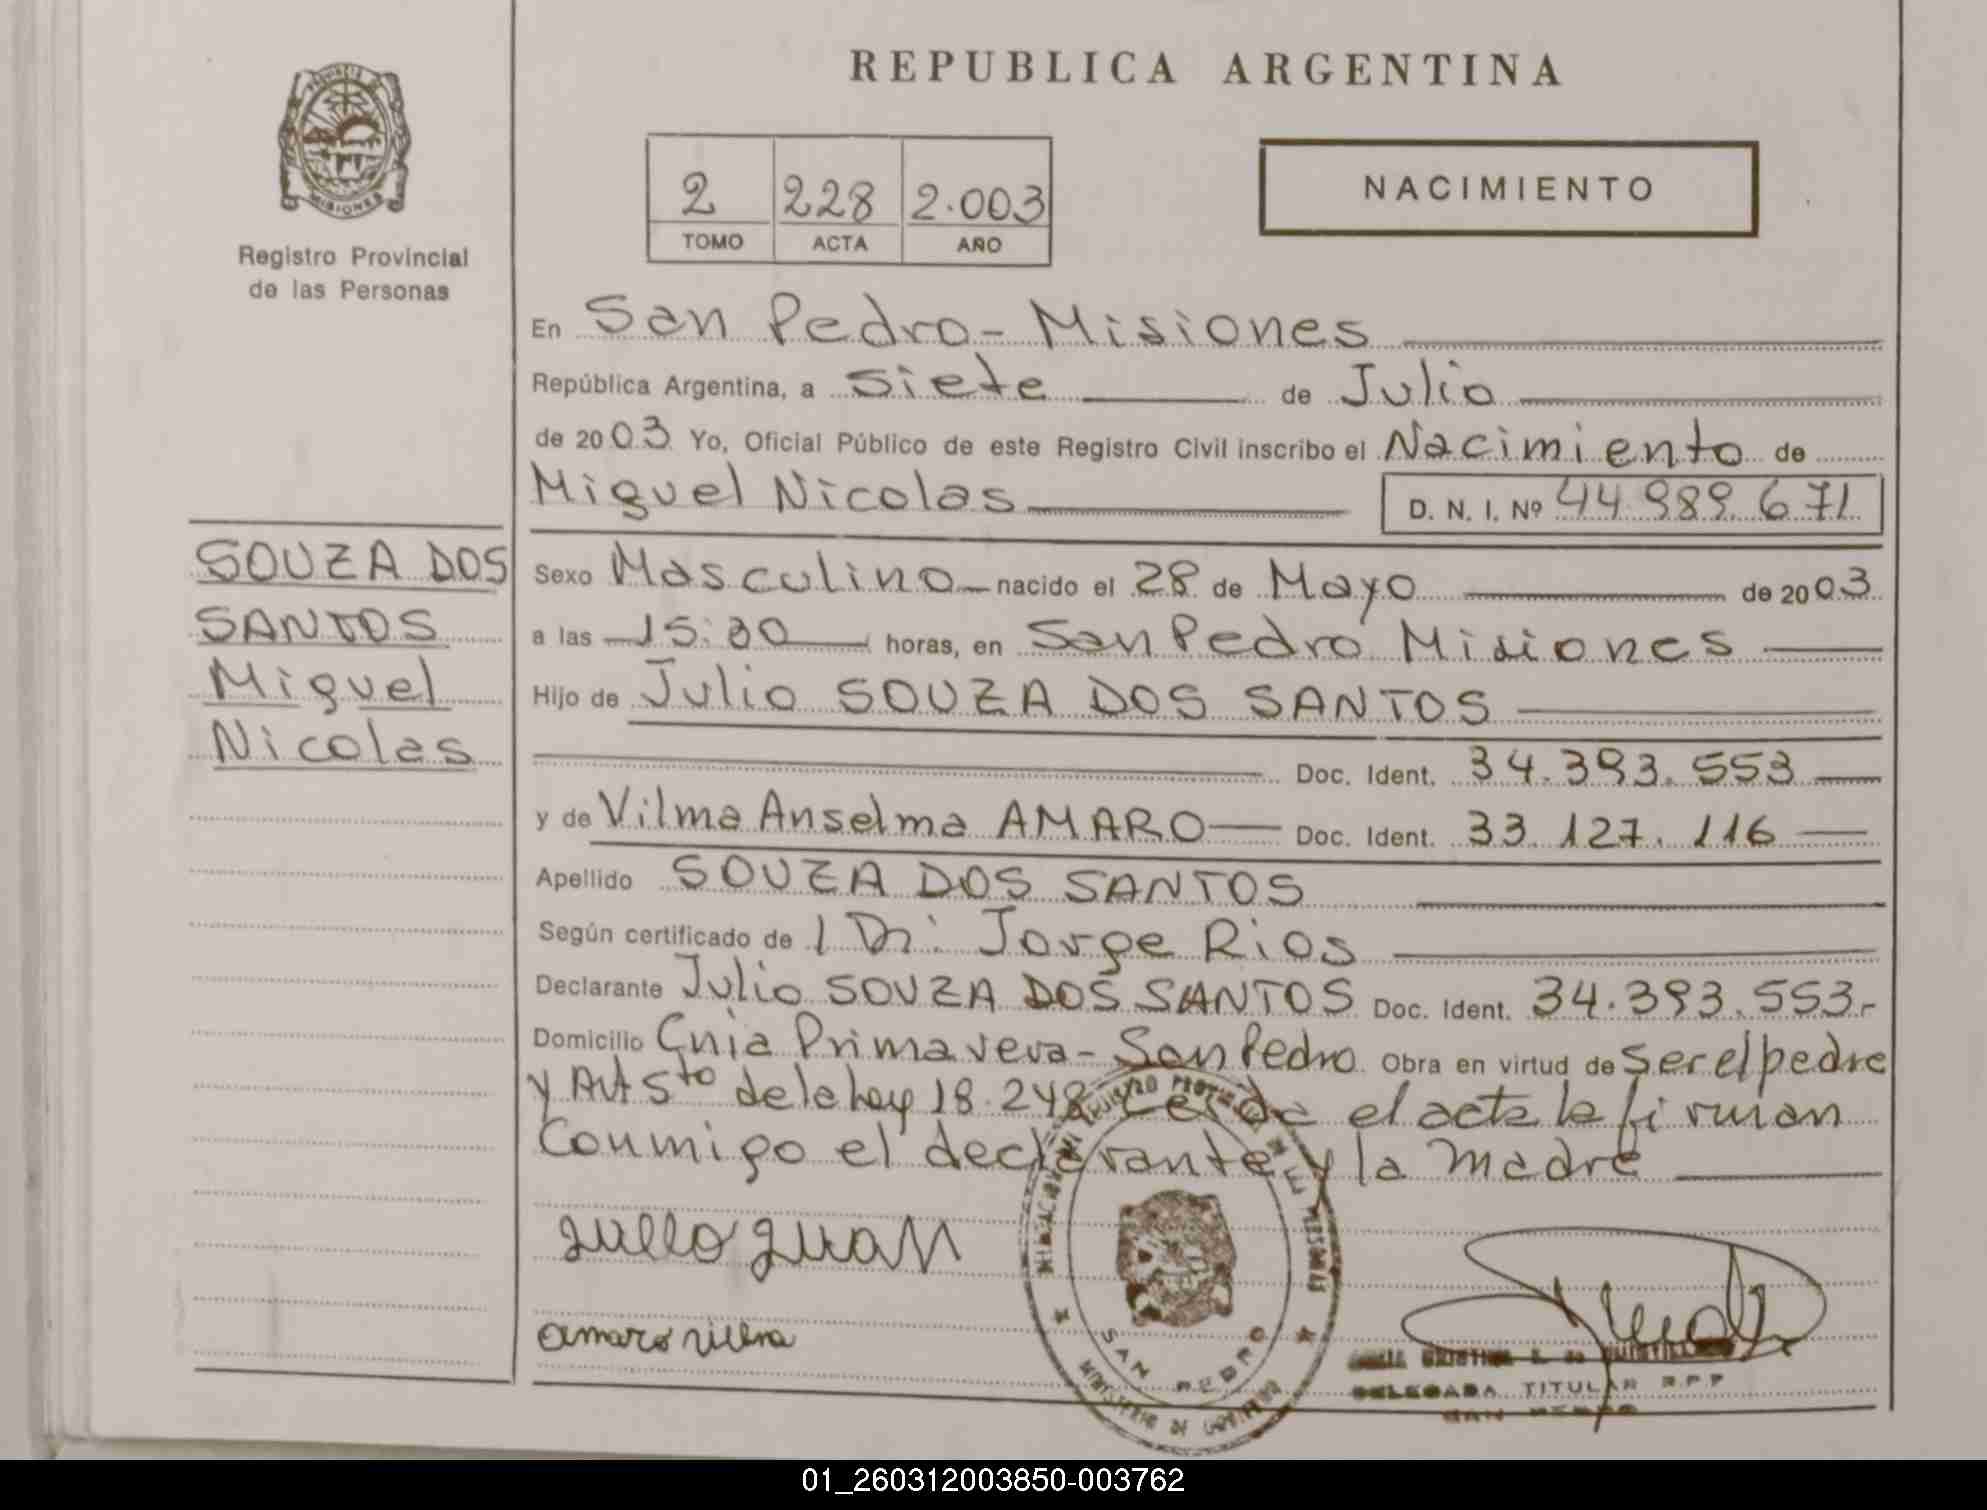 REPUBLICA ARGENTINA
PROVINCIA DE
MISIONES
Registro Provincial
de las Personas
2 228 2.003
TOMO ACTA AÑO
NACIMIENTO
En San Pedro - Misiones
República Argentina, a siete de Julio
de 2003 Yo, Oficial Público de este Registro Civil inscribo el Nacimiento de
Miguel Nicolas D. N. I. Nº 44.989.671
SOUZA DOS
SANTOS
Miguel
Nicolas
Sexo Masculino nacido el 28 de Mayo de 2003
a las 15:30 horas, en San Pedro Misiones
Hijo de Julio SOUZA DOS SANTOS
Doc. Ident. 34.393.553
y de Vilma Anselma AMARO Doc. Ident. 33.127.116
Apellido SOUZA DOS SANTOS
Según certificado de Dr: Jorge Rios
Declarante Julio SOUZA DOS SANTOS Doc. Ident. 34.393.553
Domicilio Cnia Primavera - San Pedro Obra en virtud de ser el padre
y Art 5to de la ley 18.248 Leída el acta la firman
Conmigo el declarante y la madre
Julio Juan
amaro vilma
SAN PEDRO
MINISTERIO DE GOBIERNO
DELEGADA TITULAR R.P.P
SAN PEDRO
01_260312003850-003762